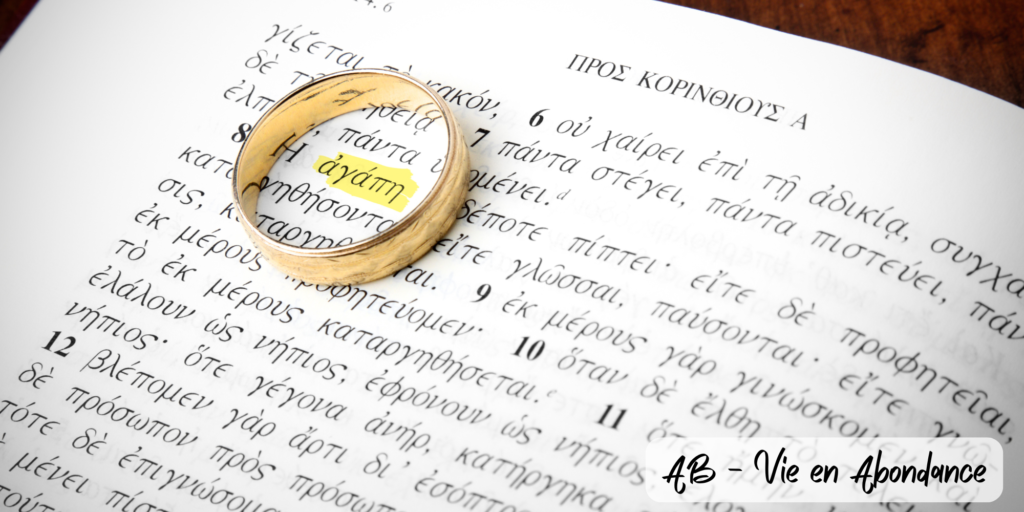 4.6
ΠΡΟΣ ΚΟΡΙΝΘΙΟΥΣ Α
γίζεται τὸ κακόν, 6 οὐ χαίρει ἐπὶ τῇ ἀδικίᾳ, συγχα
δὲ ηθείᾳ 7 πάντα στέγει, πάντα πιστεύει, πάν
ἐλπ πάντα ομένει.d
8 Ἡ ἀγάπη δέποτε πίπτει· εἴτε δὲ προφητεῖαι,
κατα γηθήσοντα εἴτε γλῶσσαι, παύσονται· εἴτε γνῶ
σις, καταργηθ ται. 9 ἐκ μέρους γὰρ γινώσκομεν καὶ
ἐκ μέρους προφητεύομεν· 10 ὅταν δὲ ἔλθῃ τὸ
τὸ ἐκ μέρους καταργηθήσεται. 11 ὅτε
ἐλάλουν ὡς νήπιος, ἐφρόνουν ὡς νήπιος,
νήπιος· ὅτε γέγονα ἀνήρ, κατήργηκα
12 βλέπομεν γὰρ ἄρτι δι' ἐσόπτ
δὲ πρόσωπον πρὸς πρόσωπ
τότε δὲ ἐπιγνώσομα
μένει πίσ
AB - Vie en Abondance